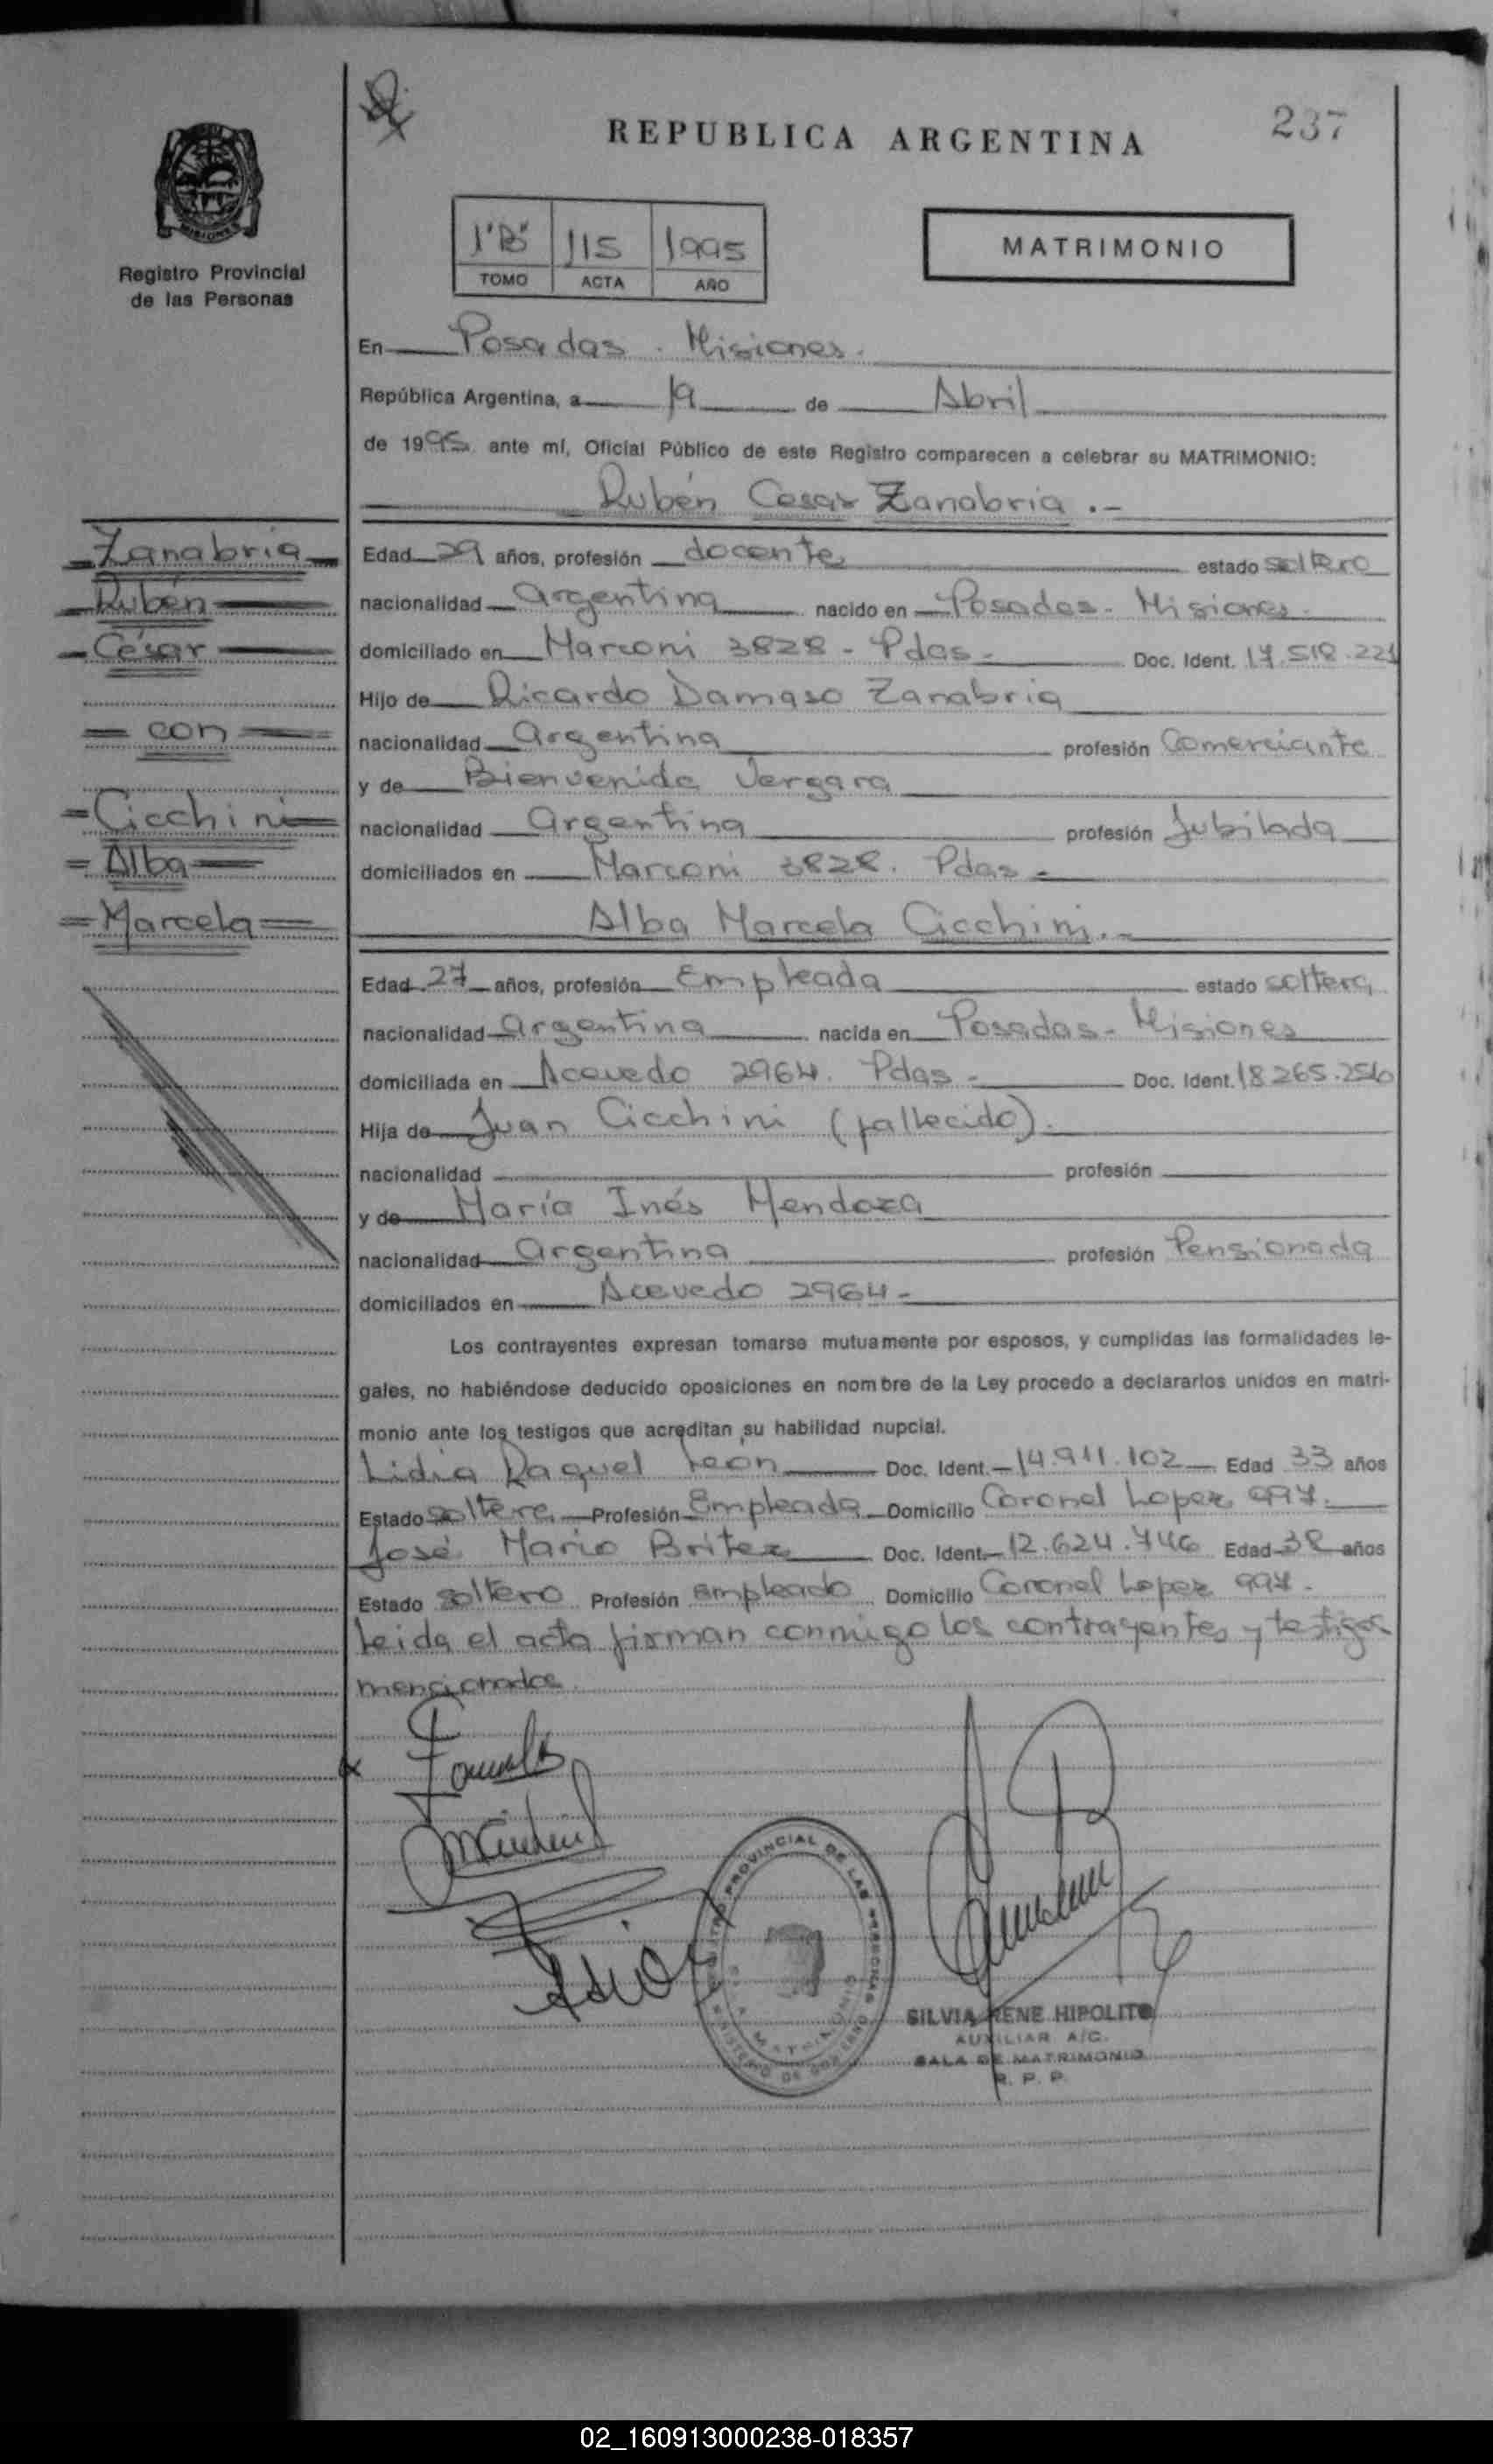 REPUBLICA ARGENTINA
237
MISIONES
Registro Provincial
de las Personas
1"B" 115 1995
TOMO ACTA AÑO
MATRIMONIO
En Posadas. Misiones.
República Argentina, a 19 de Abril
de 1995 ante mí, Oficial Público de este Registro comparecen a celebrar su MATRIMONIO:
Rubén Cesar Zanabria.-
Zanabria
Rubén
César
con
Cicchini
Alba
Marcela
Edad 29 años, profesión docente estado soltero
nacionalidad argentina nacido en Posadas- Misiones-
domiciliado en Marconi 3828 - Pdas- Doc. Ident. 17.518.221
Hijo de Ricardo Damaso Zanabria
nacionalidad argentina profesión Comerciante
y de Bienvenida Vergara
nacionalidad argentina profesión Jubilada
domiciliados en Marconi 3828. Pdas-
Alba Marcela Cicchini.-
Edad 27 años, profesión Empleada estado soltera
nacionalidad argentina nacida en Posadas- Misiones
domiciliada en Acevedo 2964. Pdas- Doc. Ident. 18.265.256
Hija de Juan Cicchini (fallecido).
nacionalidad profesión
y de María Inés Mendoza
nacionalidad argentina profesión Pensionada
domiciliados en Acevedo 2964-
Los contrayentes expresan tomarse mutuamente por esposos, y cumplidas las formalidades le-
gales, no habiéndose deducido oposiciones en nombre de la Ley procedo a declararlos unidos en matri-
monio ante los testigos que acreditan su habilidad nupcial.
Lidia Raquel Leon Doc. Ident. 14.911.102 Edad 33 años
Estado soltera Profesión Empleada Domicilio Coronel Lopez 997.
José Mario Britez Doc. Ident. 12.624.746 Edad 38 años
Estado soltero Profesión Empleado Domicilio Coronel Lopez 997.
Leida el acta firman conmigo los contrayentes y testigos
mencionados.
PROVINCIAL DE LAS PERSONAS
MATRIMONIO
MINISTERIO DE GOBIERNO
SILVIA RENE HIPOLITO
AUXILIAR A/C.
SALA DE MATRIMONIO
R. P. P.
02_160913000238-018357